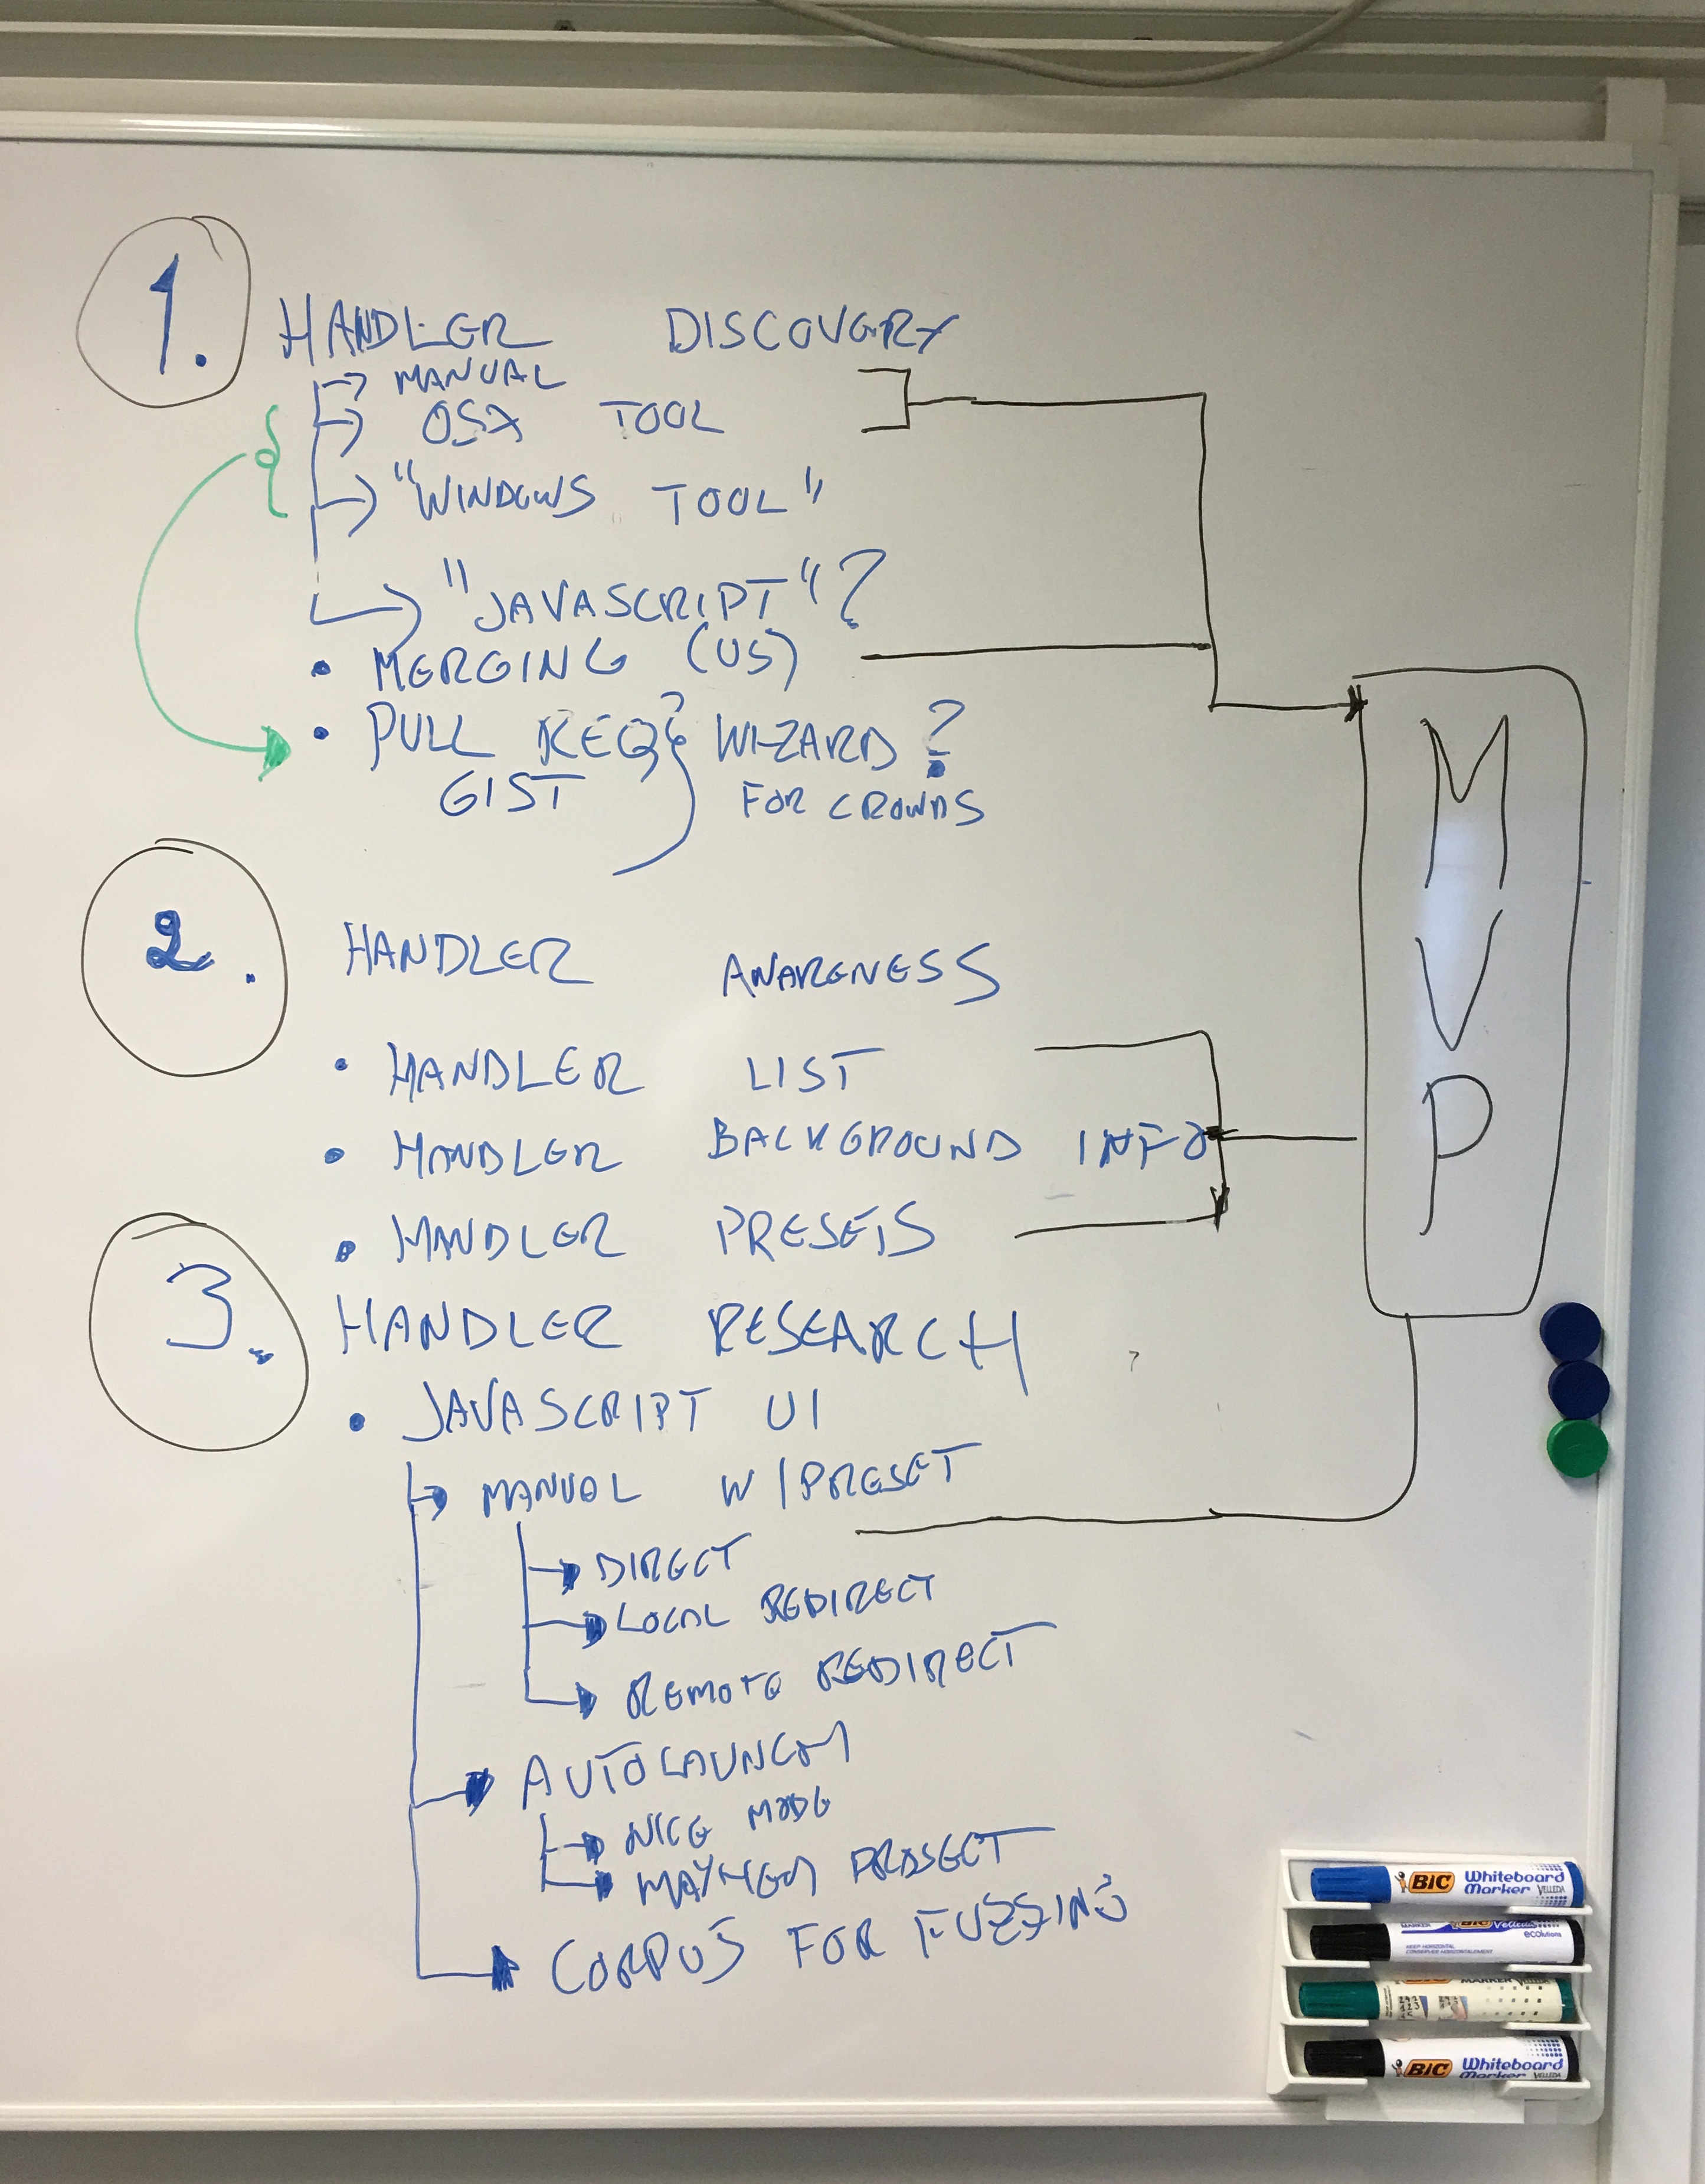 1.
HANDLER DISCOVERY
MANUAL
OSX TOOL
"WINDOWS TOOL"
"JAVASCRIPT"?
• MERGING (US)
• PULL REQ? WIZARD?
GIST FOR CROWDS
2.
HANDLER AWARENESS
• HANDLER LIST
• HANDLER BACKGROUND INFO
• HANDLER PRESETS
3.
HANDLER RESEARCH
• JAVASCRIPT UI
MANUAL W/PRESET
DIRECT
LOCAL REDIRECT
REMOTE REDIRECT
AUTOLAUNCH
NICE MODE
MAYHEM PROJECT
CORPUS FOR FUZZING
MVP
BIC Whiteboard
Marker VELLEDA
MARKER BIC Velleda
ecolutions
KEEP HORIZONTAL
CONSERVER HORIZONTALEMENT
BIC MARKER
BIC Whiteboard
Marker VELLEDA